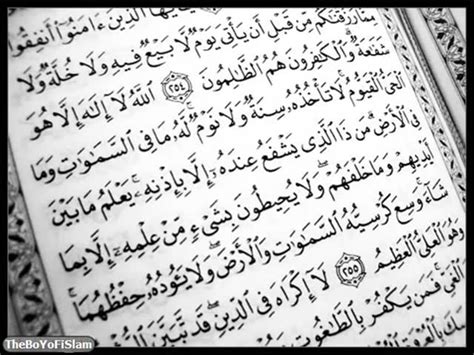 يُّهَا ٱلَّذِينَ ءَامَنُوٓا۟ أَنفِقُوا۟
مِمَّا رَزَقْنَٰكُم مِّن قَبْلِ أَن يَأْتِىَ يَوْمٌ لَّا بَيْعٌ فِيهِ وَلَا خُلَّةٌ وَلَا
شَفَٰعَةٌ ۗ وَٱلْكَٰفِرُونَ هُمُ ٱلظَّٰلِمُونَ ٢٥٤ ٱللَّهُ لَآ إِلَٰهَ إِلَّا هُوَ
ٱلْحَىُّ ٱلْقَيُّومُ ۚ لَا تَأْخُذُهُۥ سِنَةٌ وَلَا نَوْمٌ ۚ لَّهُۥ مَا فِى ٱلسَّمَٰوَٰتِ وَمَا
فِى ٱلْأَرْضِ ۗ مَن ذَا ٱلَّذِى يَشْفَعُ عِندَهُۥٓ إِلَّا بِإِذْنِهِۦ ۚ يَعْلَمُ مَا بَيْنَ
أَيْدِيهِمْ وَمَا خَلْفَهُمْ ۖ وَلَا يُحِيطُونَ بِشَىْءٍ مِّنْ عِلْمِهِۦٓ إِلَّا بِمَا
شَآءَ ۚ وَسِعَ كُرْسِيُّهُ ٱلسَّمَٰوَٰتِ وَٱلْأَرْضَ ۖ وَلَا يَـُٔودُهُۥ حِفْظُهُمَا ۚ
وَهُوَ ٱلْعَلِىُّ ٱلْعَظِيمُ ٢٥٥ لَآ إِكْرَاهَ فِى ٱلدِّينِ ۖ قَد تَّبَيَّنَ
ٱلْغَىِّ ۚ فَمَن يَكْفُرْ بِٱلطَّٰغُوتِ
TheBoYoFiSlam